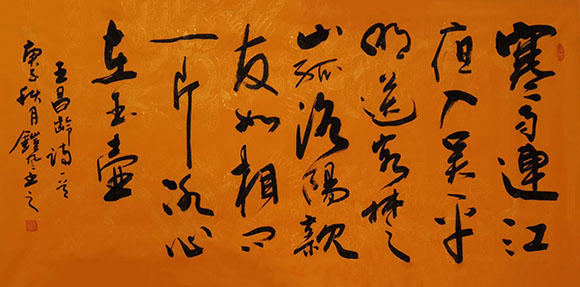 寒雨連江
夜入吴平
明送客楚
山孤洛陽親
友如相问
一片冰心
在玉壶
王昌龄诗一首
庚子秋月书之